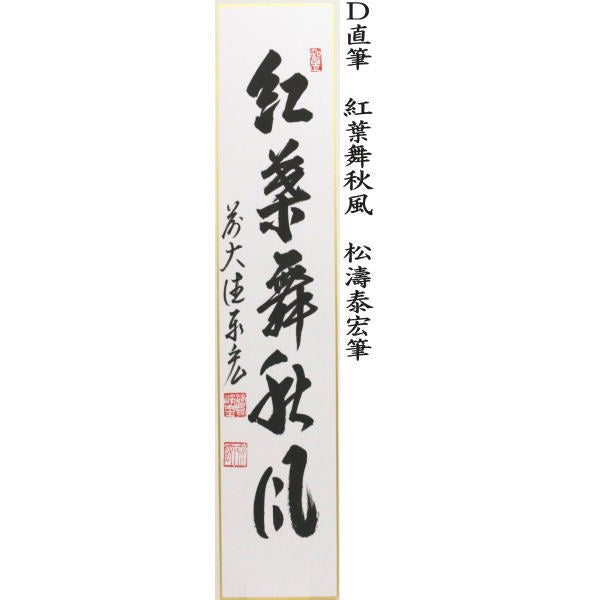 D直筆 紅葉舞秋風 松濤泰宏筆
紅葉舞秋風
前大徳泰宏